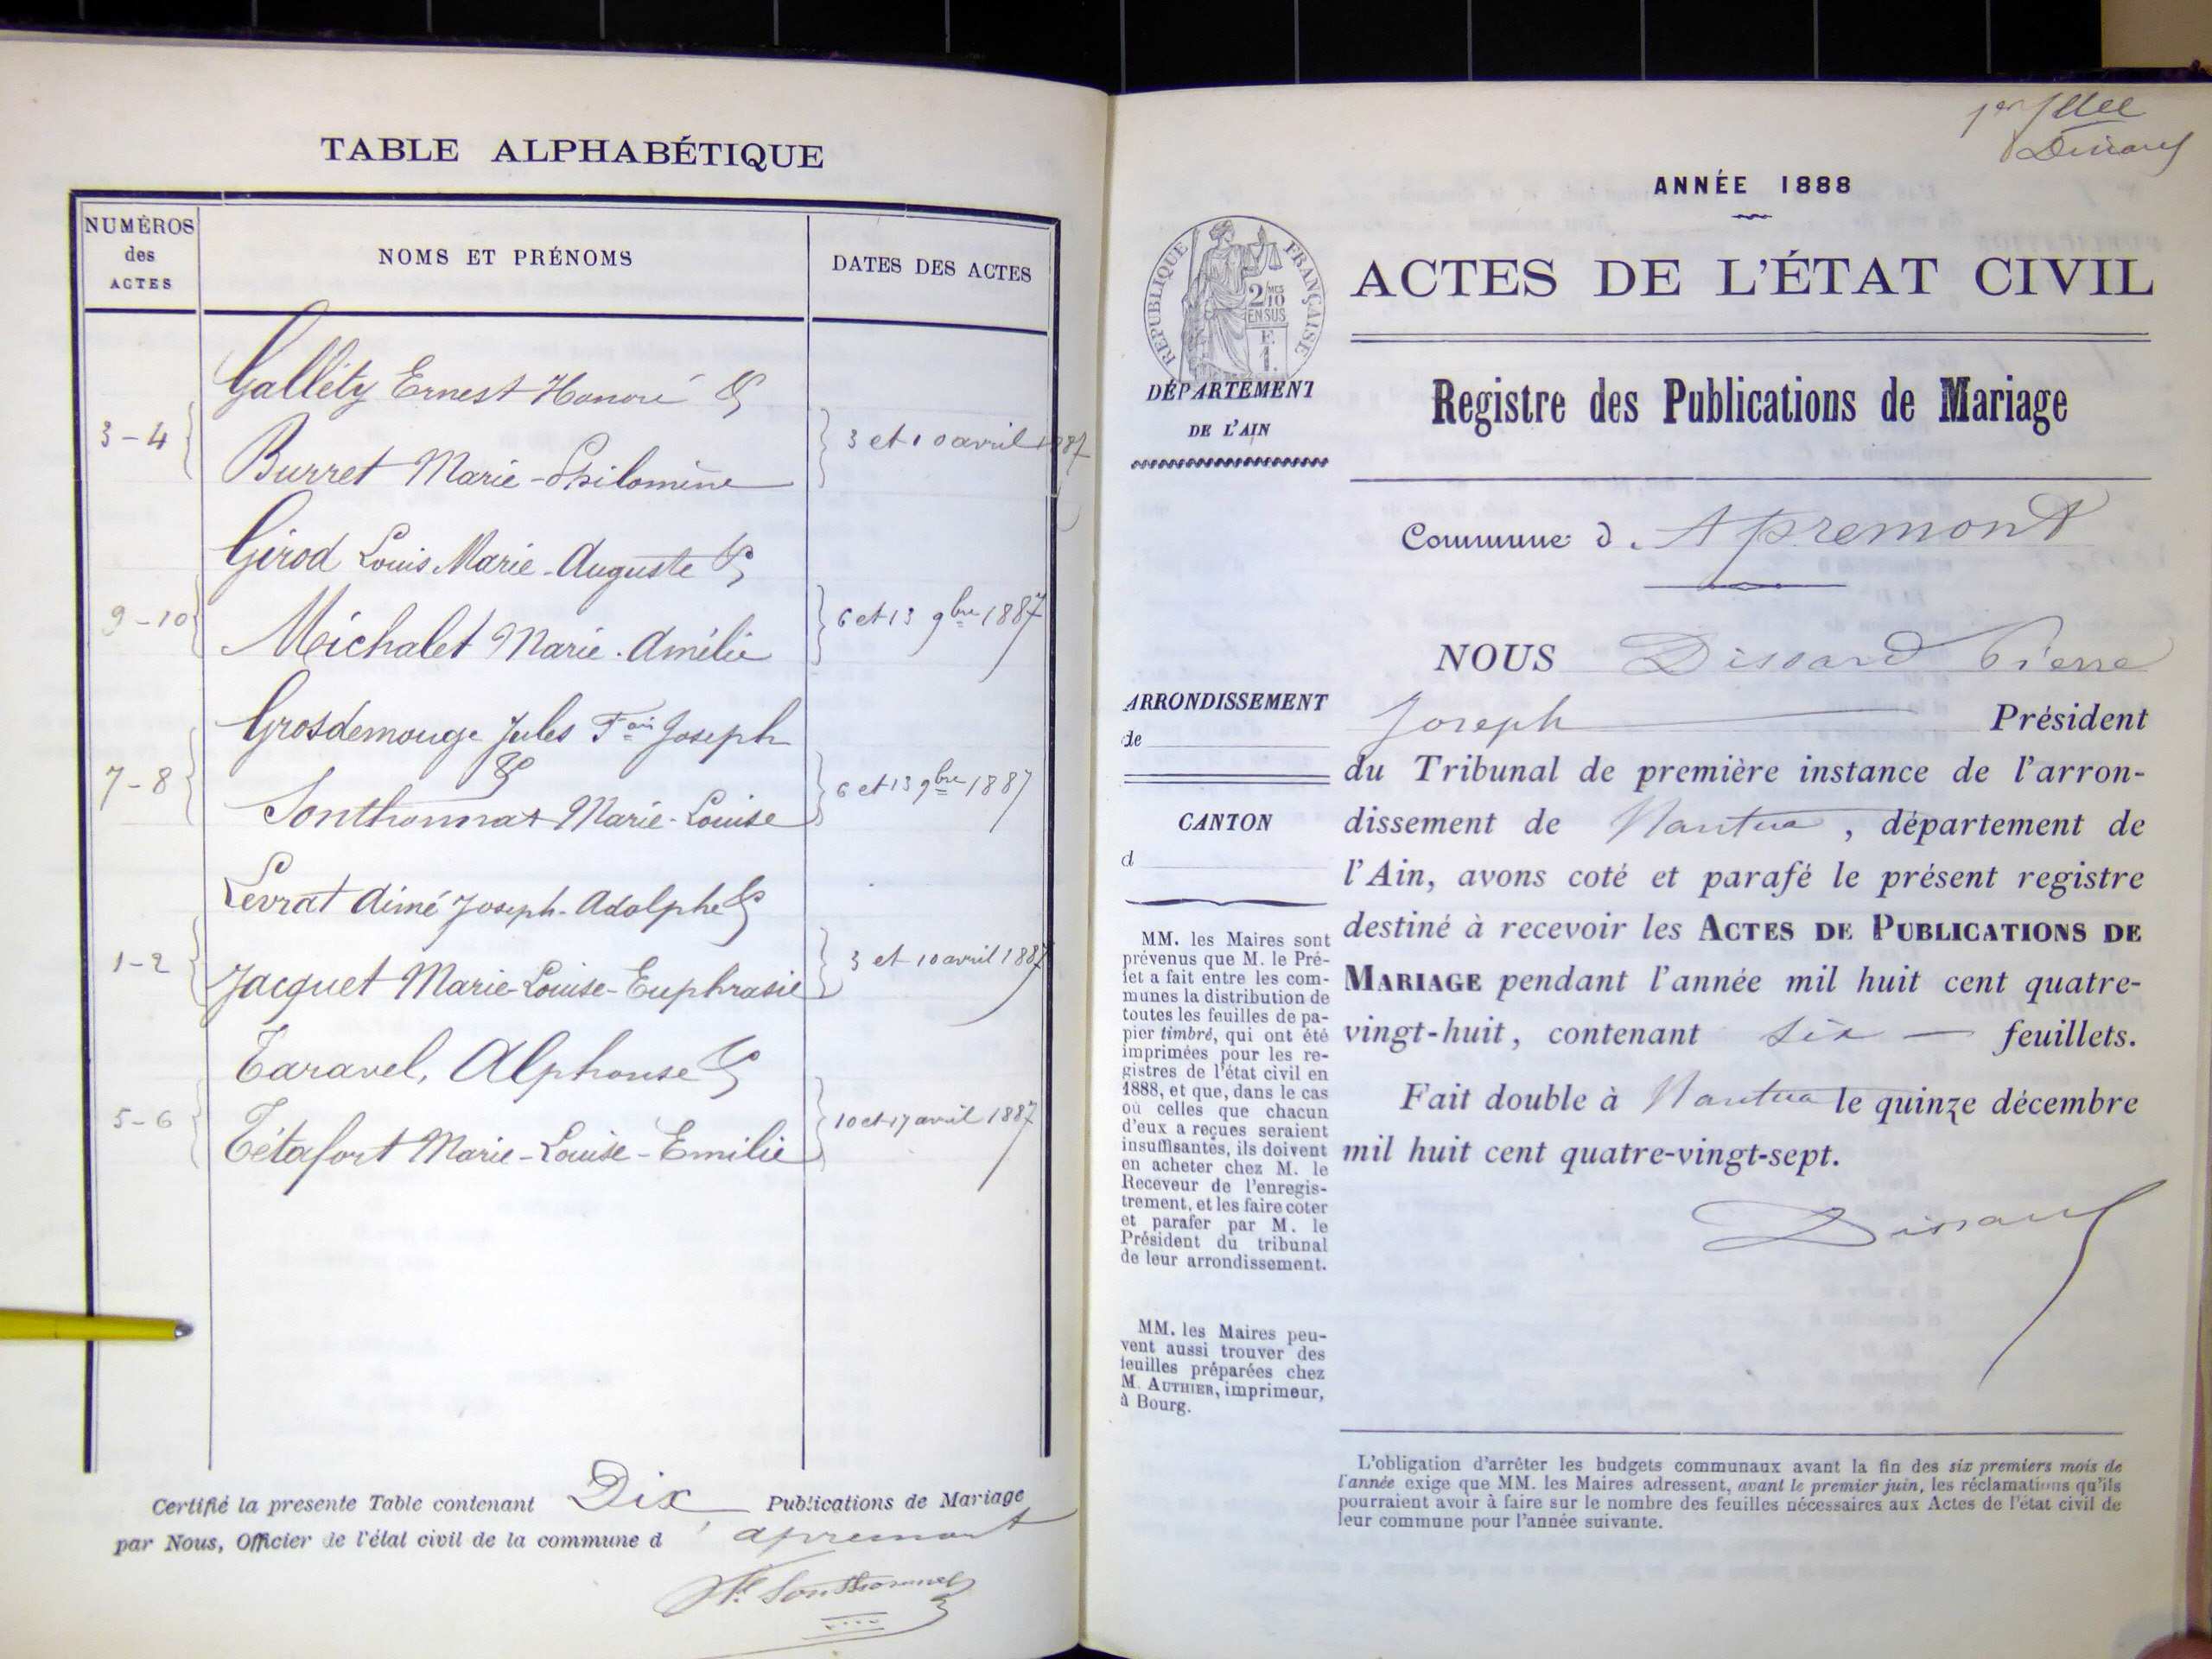 TABLE ALPHABÉTIQUE
NUMÉROS
des
ACTES
NOMS ET PRÉNOMS
DATES DES ACTES
Galléty Ernest Honoré &
3-4
3 et 10 avril 1887
Burret Marie-Philomène
Girod Louis Marie-Auguste &
9-10
6 et 13 9bre 1887
Michalet Marie-Amélie
Grosdemouge Jules Fois Joseph
&
7-8
6 et 13 9bre 1887
Sonthonnax Marie-Louise
Levrat Aimé Joseph-Adolphe &
1-2
3 et 10 avril 1887
Jacquet Marie-Louise-Euphrasie
Taravel, Alphonse &
5-6
10 et 17 avril 1887
Tétafort Marie-Louise-Emilie
Certifié la presente Table contenant Dix Publications de Mariage
par Nous, Officier de l'état civil de la commune d'apremont
Sonthonnax
1er fllet
Dissard
ANNÉE 1888
RÉPUBLIQUE FRANÇAISE
2/10
EN SUS
F.
1.
ACTES DE L'ÉTAT CIVIL
DÉPARTEMENT
DE L'AIN
Registre des Publications de Mariage
Commune d'Apremont
ARRONDISSEMENT
de
CANTON
d
NOUS Dissard Pierre
Joseph Président
du Tribunal de première instance de l'arron-
dissement de Nantua, département de
l'Ain, avons coté et parafé le présent registre
destiné à recevoir les ACTES DE PUBLICATIONS DE
MARIAGE pendant l'année mil huit cent quatre-
vingt-huit, contenant six — feuillets.
Fait double à Nantua le quinze décembre
mil huit cent quatre-vingt-sept.
Dissard
MM. les Maires sont
prévenus que M. le Pré-
fet a fait entre les com-
munes la distribution de
toutes les feuilles de pa-
pier timbré, qui ont été
imprimées pour les re-
gistres de l'état civil en
1888, et que, dans le cas
où celles que chacun
d'eux a reçues seraient
insuffisantes, ils doivent
en acheter chez M. le
Receveur de l'enregis-
trement, et les faire coter
et parafer par M. le
Président du tribunal
de leur arrondissement.
MM. les Maires peu-
vent aussi trouver des
feuilles préparées chez
M. AUTHIER, imprimeur,
à Bourg.
L'obligation d'arrêter les budgets communaux avant la fin des six premiers mois de
l'année exige que MM. les Maires adressent, avant le premier juin, les réclamations qu'ils
pourraient avoir à faire sur le nombre des feuilles nécessaires aux Actes de l'état civil de
leur commune pour l'année suivante.